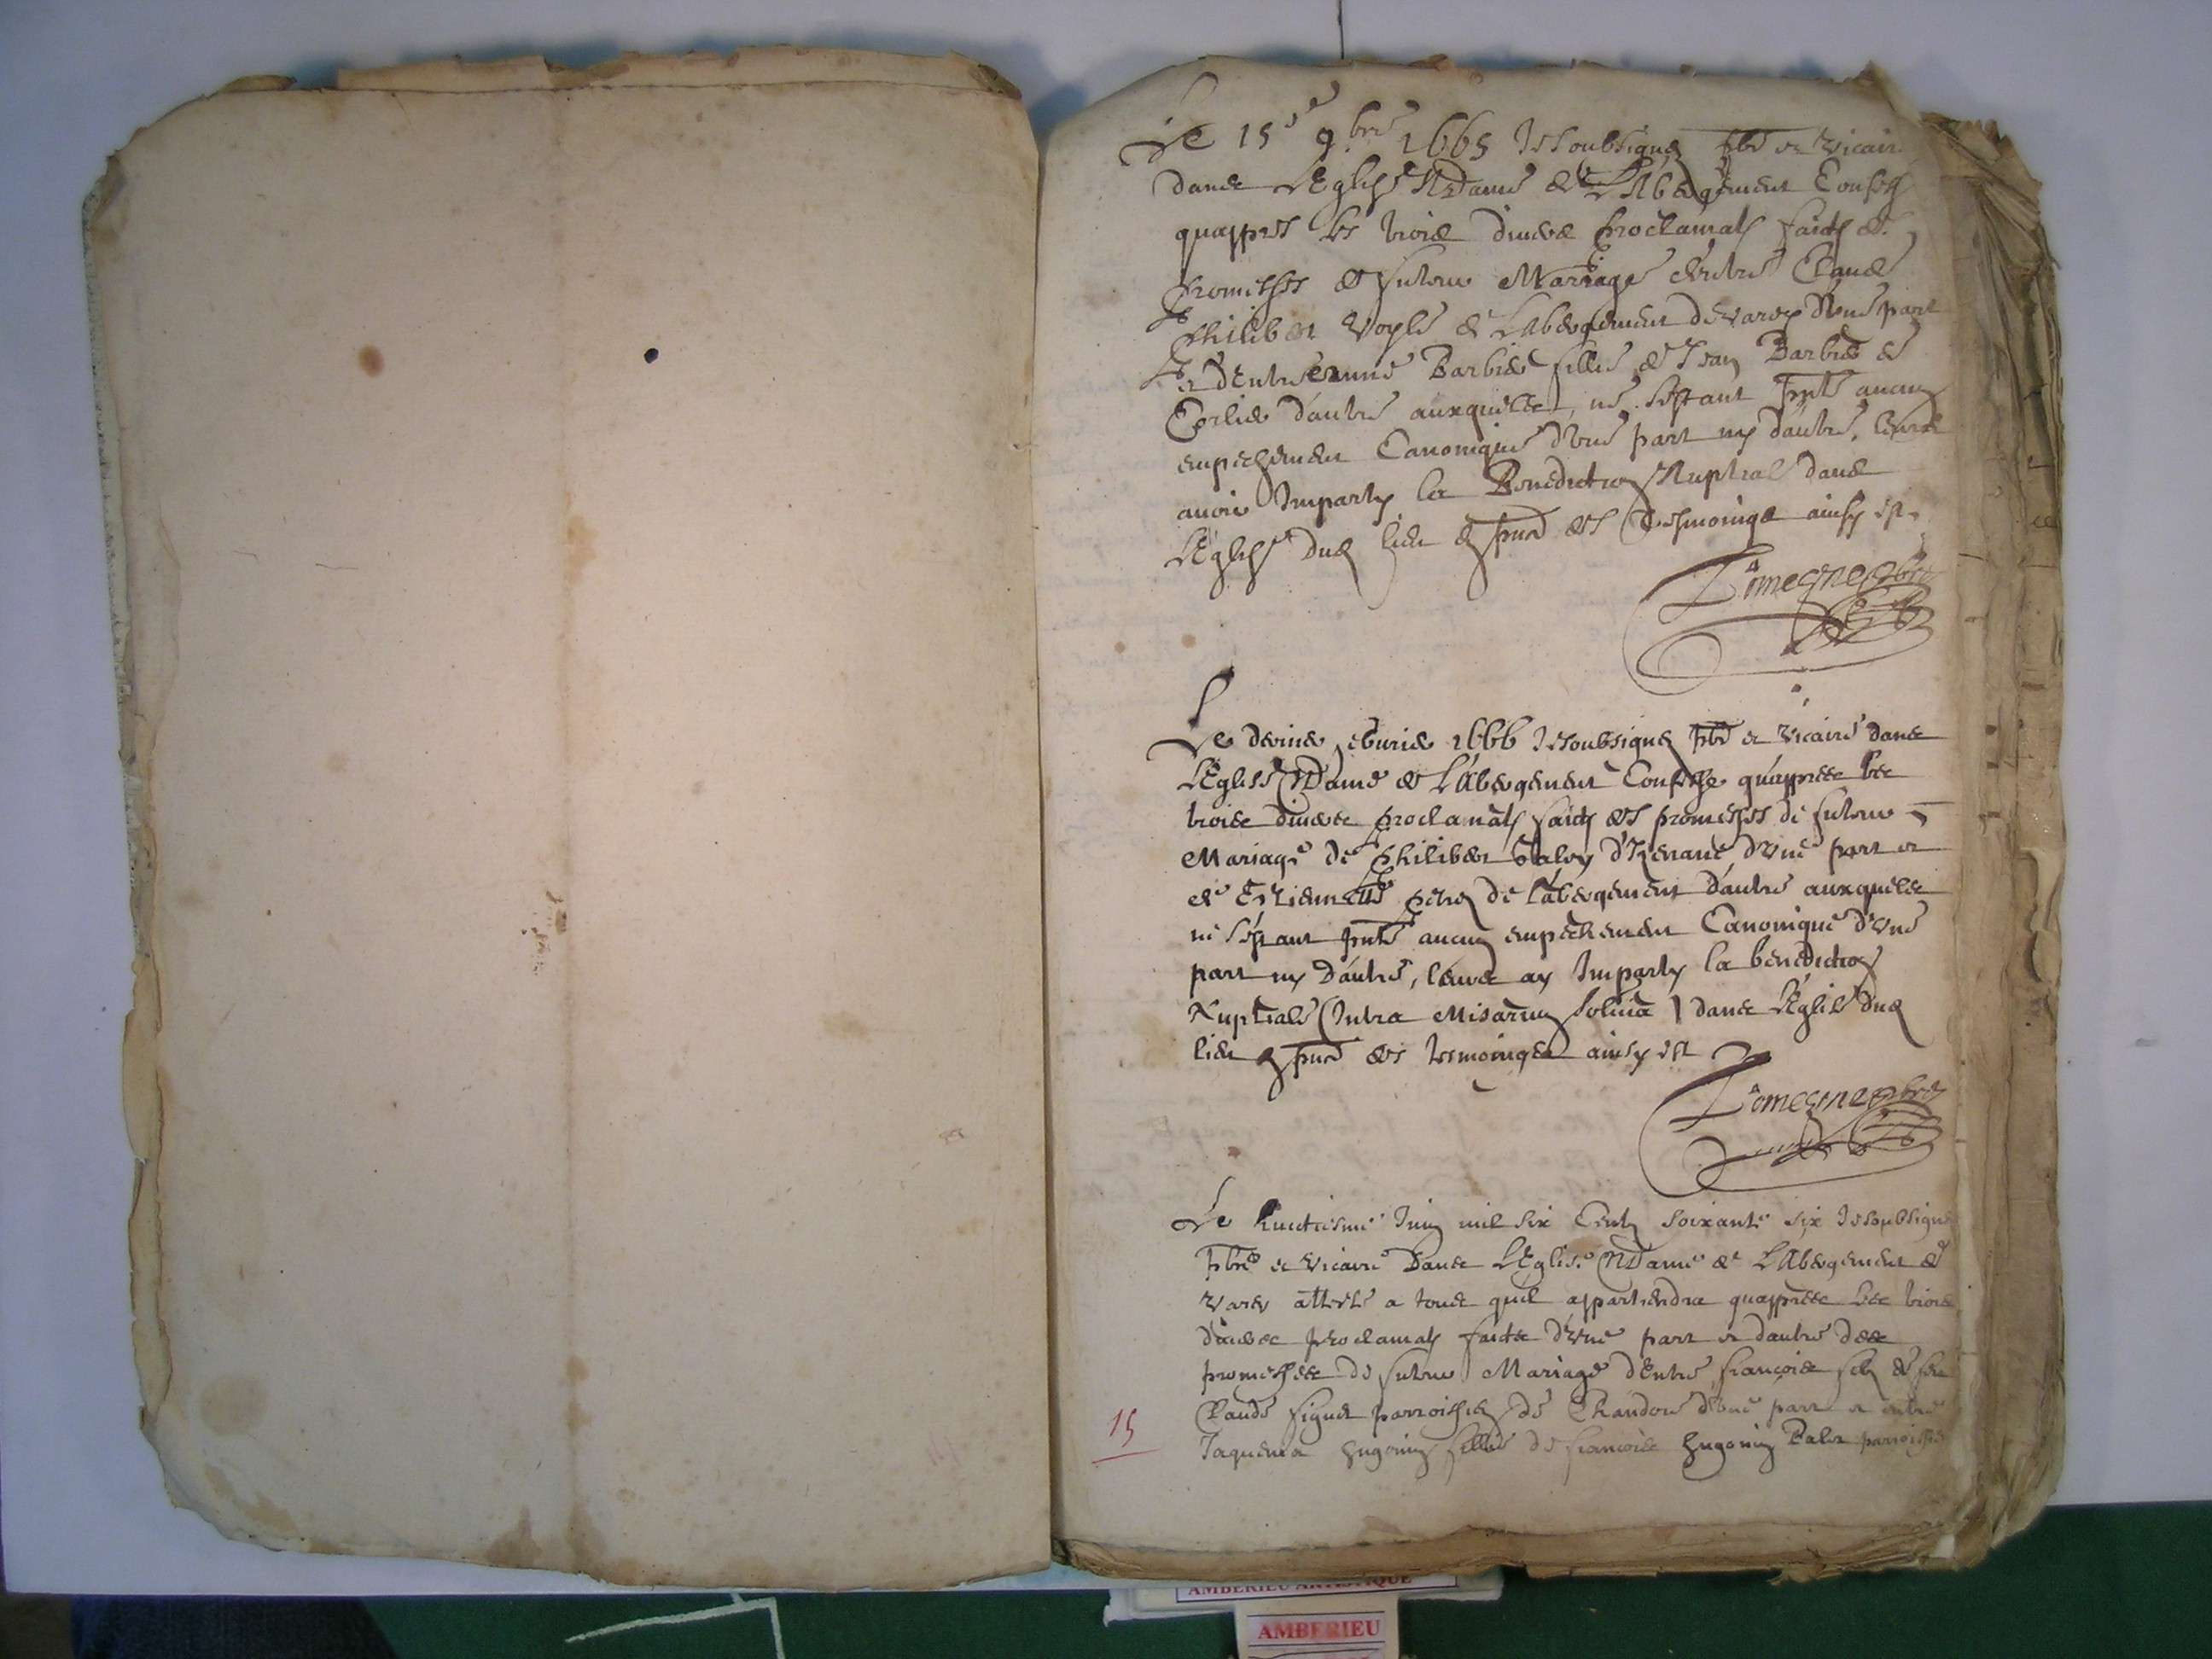 Le 15e 9bre 1665 Je soubsigné pbre et vicaire
dans L'Eglise NDame de L'Abergement Confesse
quappres les trois divers proclamats faicts de
promesses de futeur Mariage d'entre Claude
Philibert de L'Abergement de varey d'Une part
et d'Entre Barbier fillie de Jean Barbier de
d'autre auxquelles, ne s'estant pnte aucun
empechement Canonique d'Une part ny d'autre, leurs
avoir Imparty la Benediction Nuptial dans
L'Eglise dud lieu en pnce des Tesmoings ainsy est.
pbre
Le dernier febvrier 1666 Je soubsigné pbre et vicaire dans
L'Eglise NDame de L'Abergement Confesse qu'appres les
trois divers proclamats faicts des promesses de futeur
Mariage de Philibert d'Une part et
de Estiennette de Labergement d'autre auxquels
ne s'estant pnte aucun empechement Canonique d'Une
part ny d'autre, leurs ay Imparty la benediction
Nuptiale (Intra Misarum Solnia) dans L'Eglise dud
lieu en pnce des tesmoings ainsy est
pbre
Le huictiesme Juin mil six Cents soixante six Je soubsigné
pbre et vicaire dans L'Eglise NDame de L'Abergement de
varey atteste a tous quil appartiendra quappres les trois
divers proclamats faicts d'Une part et d'autre des
promesses de futeur Mariage d'Entre francois fils de feu
Claude parroissien de d'Une part et entre
Jaquema hugonin fillie de francois hugonin parroissien
15
AMBERIEU ARTISTIQUE
AMBERIEU